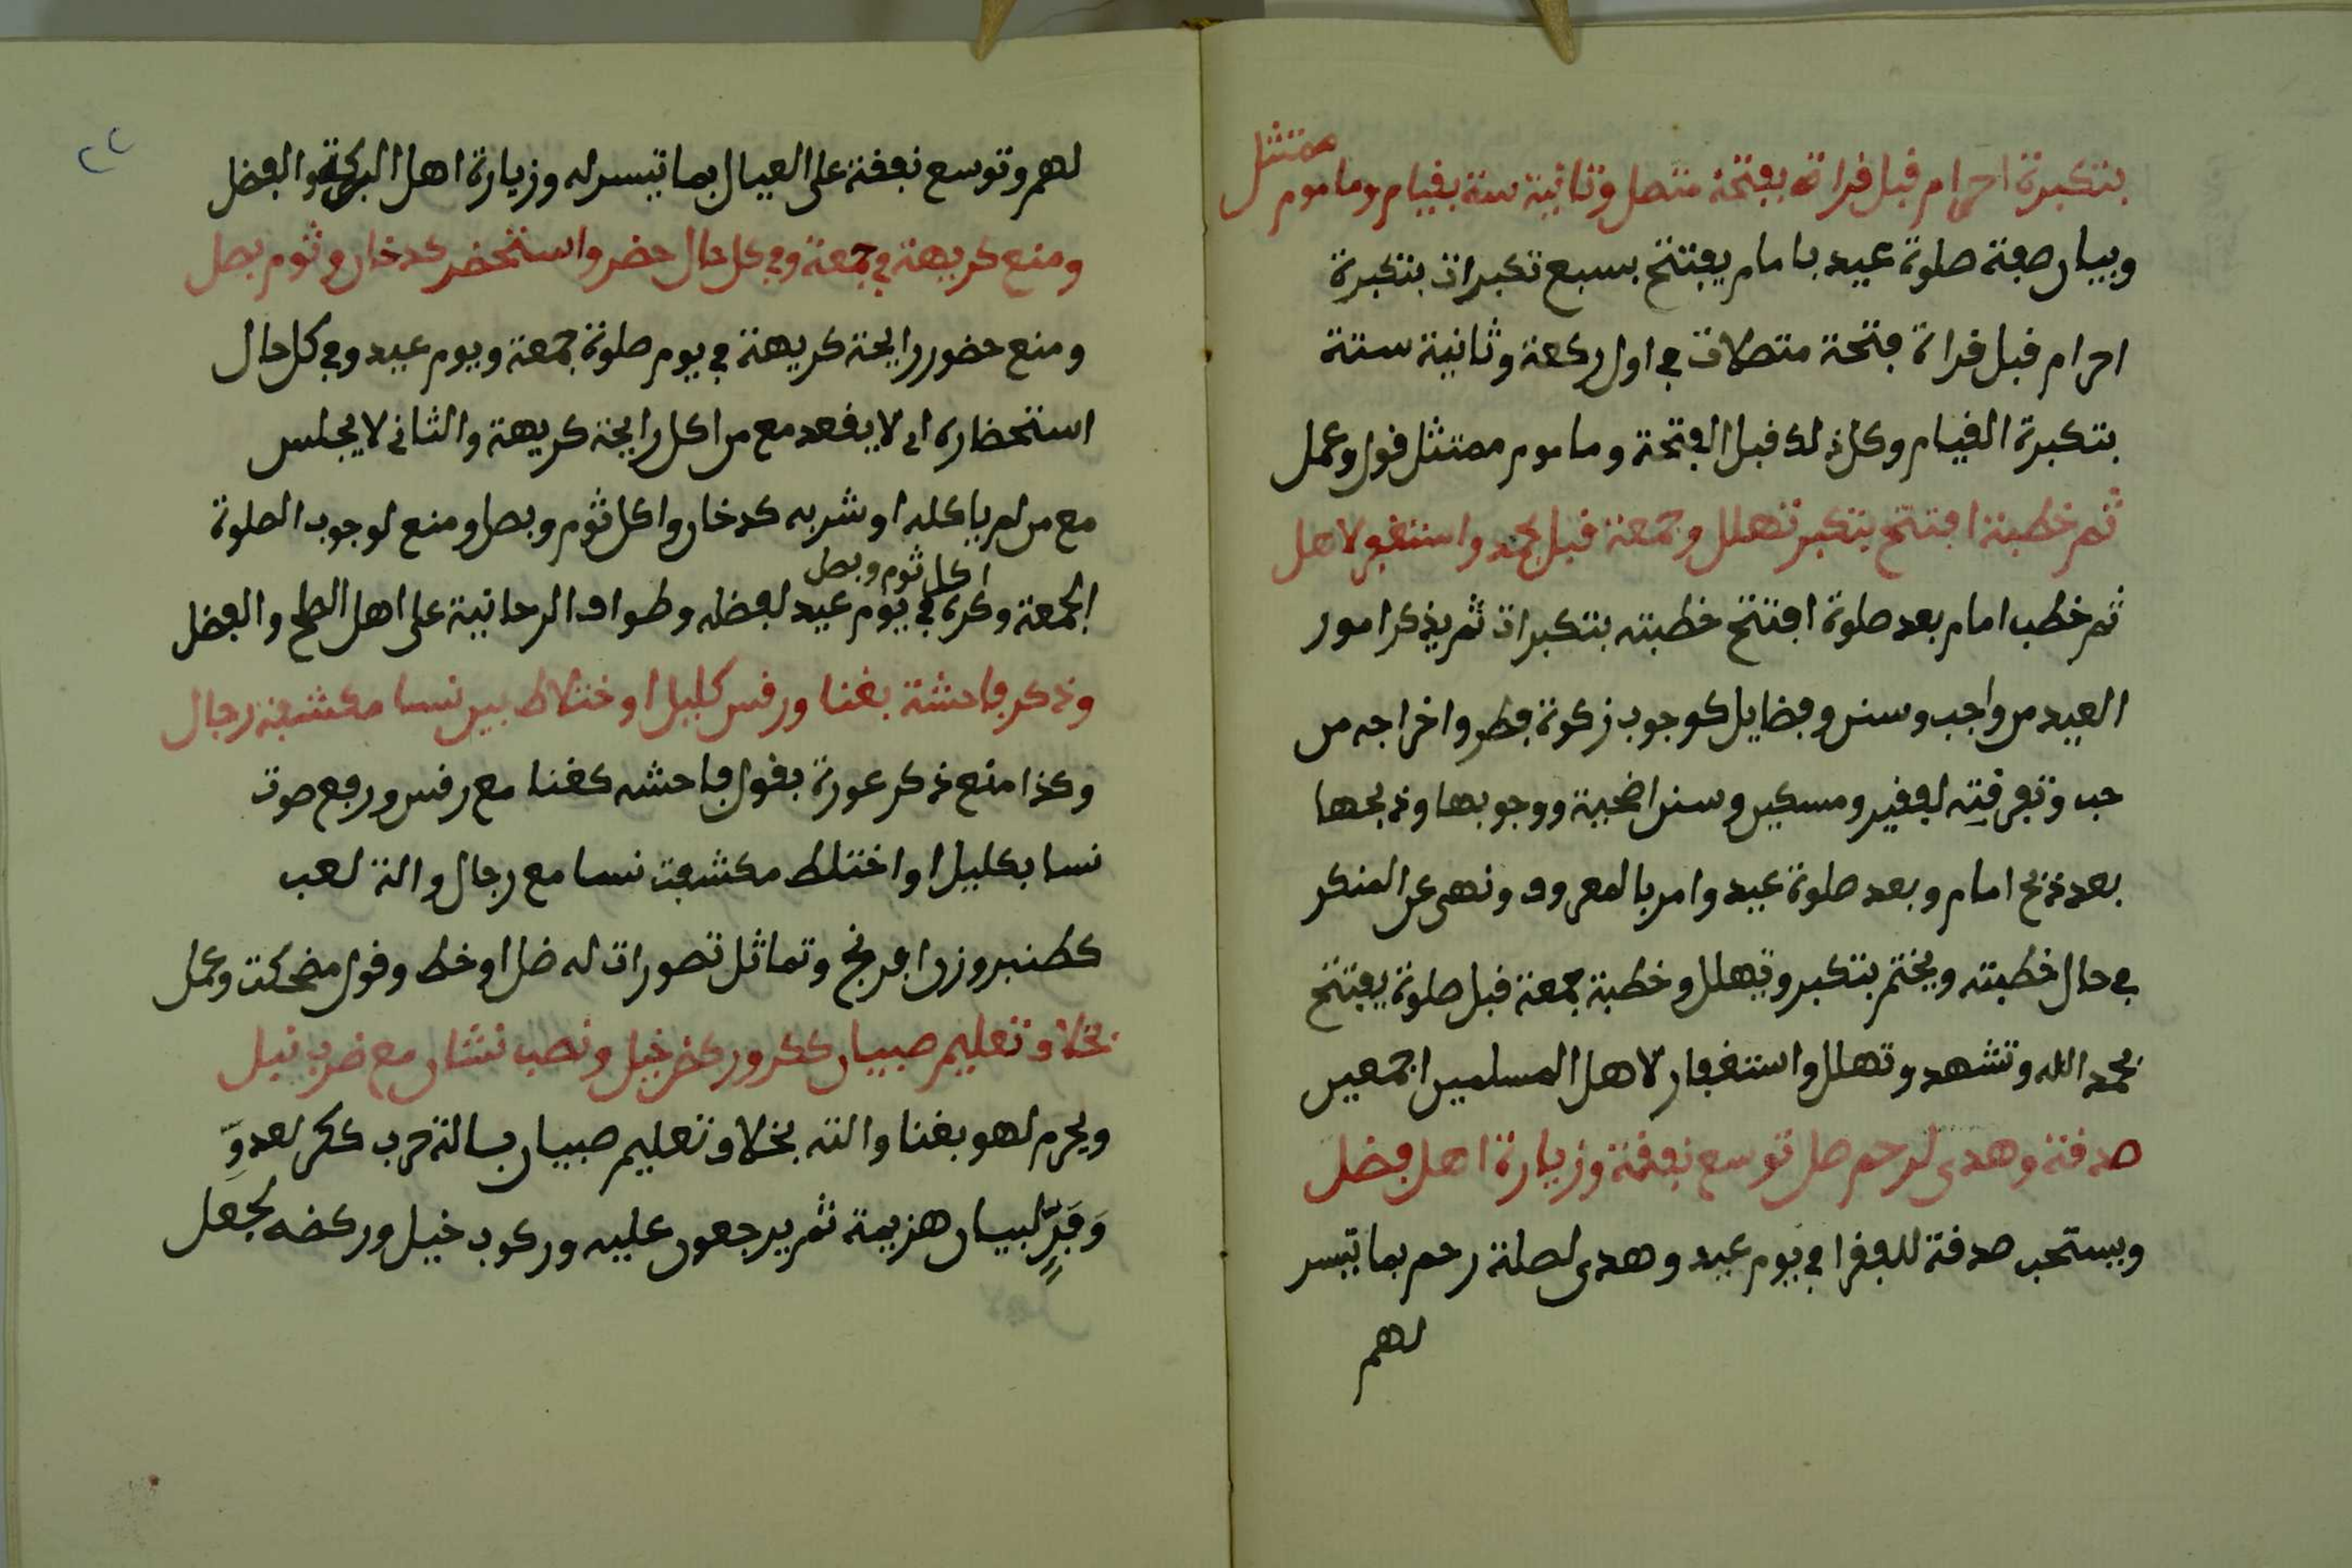 بتكبرة احرام قبل قراة بفتحة متصل وثانية ستة بقيام وماموم ممتثل
وبيان صفة صلوة عيد بامام يفتتح بسبع تكبرات بتكبرة
احرام قبل قراة فتحة متصلات في اول ركعة وثانية ستة
بتكبرة القيام وكل ذلك قبل الفتحة وماموم ممتثل قول وعمل
ثم خطبة افتتح بتكبر تهلل وجمعة قبل بحمد واستغفر لاهل
ثم خطب امام بعد صلوة افتتح خطبته بتكبرات ثم يذكر امور
العيد من واجب وسنن وفضايل كوجوب زكوة فطر واخراجه من
حب وتفرقته لفقير ومسكين وسنن اضحية ووجوبها وذبحها
بعد ذبح امام وبعد صلوة عيد وامر بالمعروف ونهى عن المنكر
في حال خطبته ويختم بتكبر وتهلل وخطبة جمعة قبل صلوة يفتتح
بحمد الله وتشهد وتهلل واستغفار لاهل المسلمين اجمعين
صدقة وهدى لرحم صل توسع نفقة وزيارة اهل فضل
ويستحب صدقة للفقرا في يوم عيد وهدى لصلة رحم بما تيسر
لهم
٢٢
لهم وتوسع نفقة على العيال بما تيسر له وزيارة اهل البركة والفضل
ومنع كريهة في جمعة وفي كل حال حضر واستحضر كدخان وثوم بصل
ومنع حضور رايحة كريهة في يوم صلوة جمعة ويوم عيد وفي كل حال
استحضاره اي لا يقعد مع من اكل رايحة كريهة والثاني لا يجلس
مع من لم ياكله او شربه كدخان واكل ثوم وبصل ومنع لوجوب الصلوة
اكل ثوم وبصل
الجمعة وكره في يوم عيد لفضله وطواف الرحانية على اهل الطح والفضل
وذكر فاحشة بغنا ورفس كليل او ختلاط بين نسا مكشفة رجال
وكذا منع ذكر عورة بقول فاحشه كغنا مع رفس ورفع صوت
نسا بكليل او اختلط مكشفت نسا مع رجال والة لعب
كطنبر وزن افرنج وتماثل تصورات له ظل او خط وقول مضحكت وعمل
بخلاف تعليم صبيان ككر وركض خيل ونصب نشان مع ضرب نبل
ويحرم لهو بغنا والته بخلاف تعليم صبيان بسالة حرب ككر لعدوِّ
وَفَرٍّ لبيان هزيمة ثم يرجعون عليه وركوب خيل وركضه بجعل